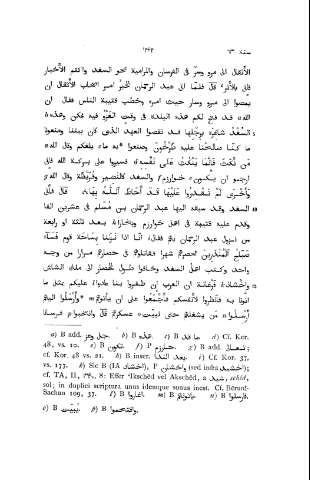 سنة ٩٣ ١٢٤٢
الاثقال الى مرو وسِرْ فى الفرسان والمرامية نحو السغد واكتم الاخبار
فانى بالاثر، قال فلمّا اتى عبد الرحمان الخبر امر اصحاب الاثقال ان
يمضوا الى مرو وسار حيث امره وخطب قتيبة الناس فقال ان
الله قد فتح لكم هذه البلدة فى وقت الغزو فيه ممكن وهذه
السغد شاغرة برجلها قد نقضوا العهد الذى كان بيننا ومنعونا
ما كنّا صالحنا عليه طرخون وصنعوا به ما بلغكم وقال الله
من نكث فانّما ينكث على نفسه فسيروا على بركة الله فانى
ارجو ان يكون خوارزم والسغد كالنضير وقريظة وقال الله
وأخرى لم تقدروا عليها قد أحاط الله بها، قال فاتى
السغد وقد سبقه اليها عبد الرحمان بن مسلم فى عشرين الفا
وقدم عليه قتيبة فى اهل خوارزم وبخارا بعد ثلثة او رابعة
من نزول عبد الرحمان بهم فقال انّا اذا نزلنا بساحة قوم فساء
صباح المنذرين فحصرهم شهرا فقاتلوهم فى حصرهم مرارا من وجه
واحد وكتب اهل السغد وخافوا طول الحصار الى ملك الشاش
واخشاذ فرغانة ان العرب ان ظفروا بنا عادوا عليكم بمثل ما
اتونا به فانظروا لأنفسكم فأجمعوا على ان يأتوهم وأرسلوا اليهم
أرسلوا من يشغلهم حتى نبيّت عسكرهم قال وانتخبوا فرسانا
a) B add. جبل وعر. b) B هذه. c) B ما قد. d) Cf. Kor.
48, vs. 10. e) B تكون. f) P خوارزم. g) B add. تعـالى;
cf. Kor. 48 vs. 21. h) B inser. بعد. i) B الثلثا. k) Cf. Kor. 37,
vs. 177. l) Sic B (IA اخشاد), P واخشان (sed infra اخشيد);
cf. TA, II, ٣٨٠, 8: Effer »Ikschêd vel Akschêd, a شيد, schêd,
sol; in duplici scriptura unus idemque sonus inest. Cf. Bêrunî-
Sachau 109, 37.